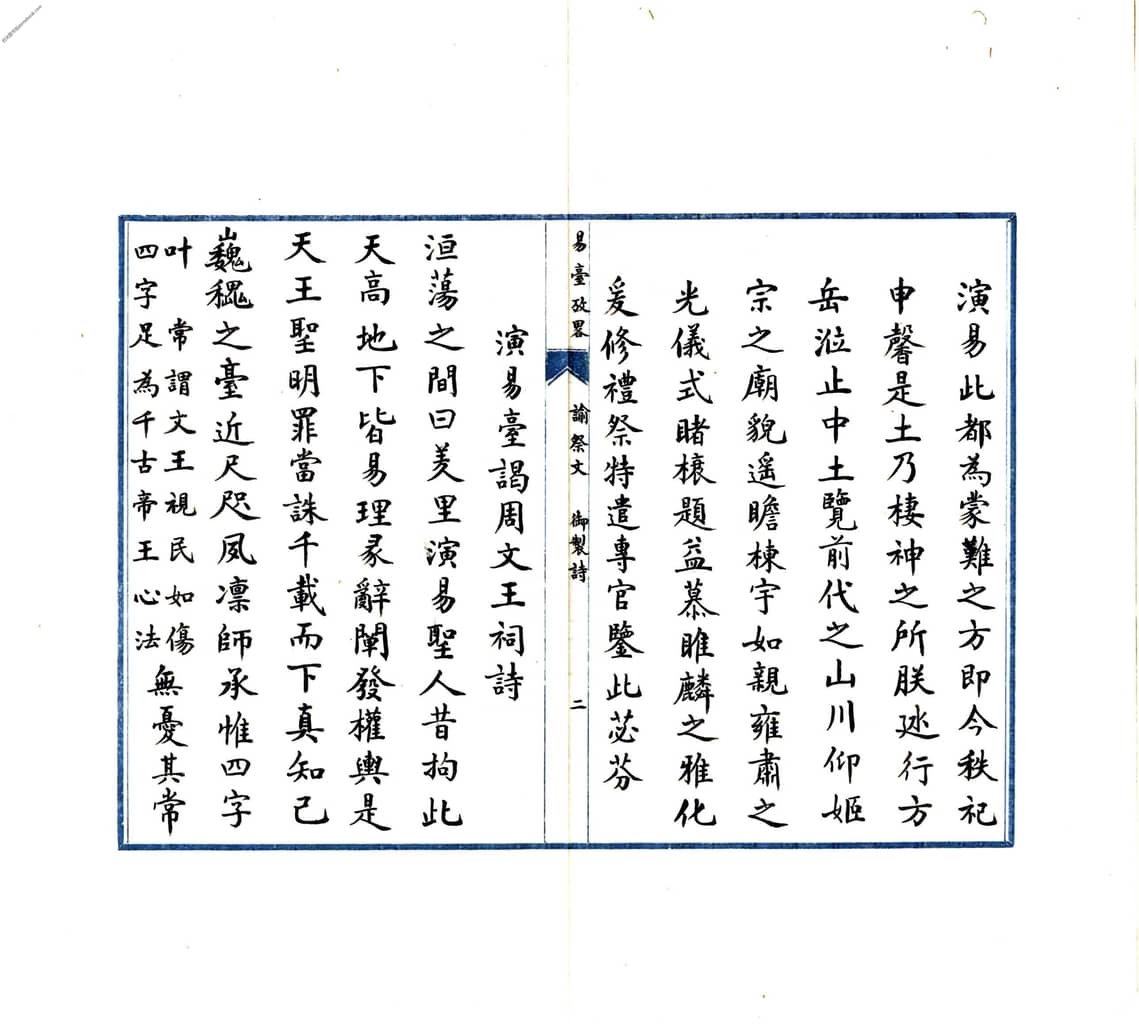 演易此都為蒙難之方即今秩祀
申馨是土乃棲神之所朕廵行方
岳涖止中土覽前代之山川仰姬
宗之廟貌遥瞻棟宇如親雍肅之
光儀式睹榱題益慕睢麟之雅化
爰修禮祭特遣專官鑒此苾芬
易臺攷畧 諭祭文 御製詩 二
演易臺謁周文王祠詩
洹蕩之間曰羑里演易聖人昔拘此
天高地下皆易理彖辭闡發權輿是
天王聖明罪當誅千載而下真知己
巍䰟之臺近尺咫夙凛師承惟四字
叶 常謂文王視民如傷
四字足為千古帝王心法
無憂其常